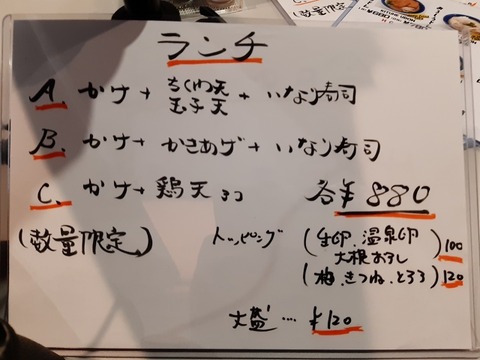 ランチ
A. かけ + ちくわ天 玉子天 + いなり寿司
B. かけ + かきあげ + いなり寿司
C. かけ + 鶏天 3コ
各¥880
(数量限定)
トッピング
(生卵、温泉卵
大根おろし) 100
(梅、きつね、とろろ) 120
大盛 … ¥120
(数量限定)